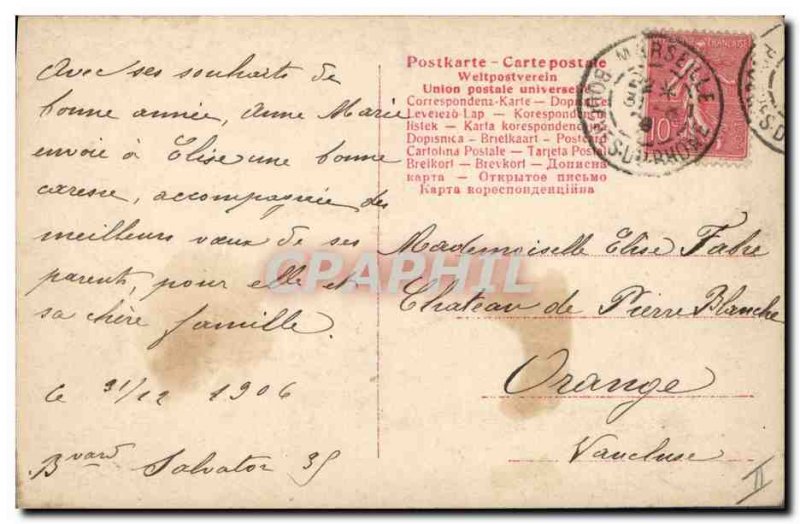 Avec ses souhaits de
bonne année, Anne Marie
envoie à Elise une bonne
caresse, accompagnée des
meilleurs vœux de ses
parents, pour elle et
sa chère famille.
le 31/12 1906
Bvard Salvator 35
Postkarte – Carte postale
Weltpostverein
Union postale universelle
Correspondenz-Karte – Dopisnice
Levelező-Lap – Korespondencni
listek – Karta korespondencyjna
Dopisnica – Briefkaart – Postcard
Cartolina Postale – Tarjeta Postal
Brefkort – Brevkort – Дописна
карта – Открытое письмо
Карта кореспонденційна
MARSEILLE
BOUCHES-DU-RHONE
FRANÇAISE
10
Mademoiselle Elise Fabre
Chateau de Pierre Blanche
Orange
Vaucluse
II
CPAPHIL